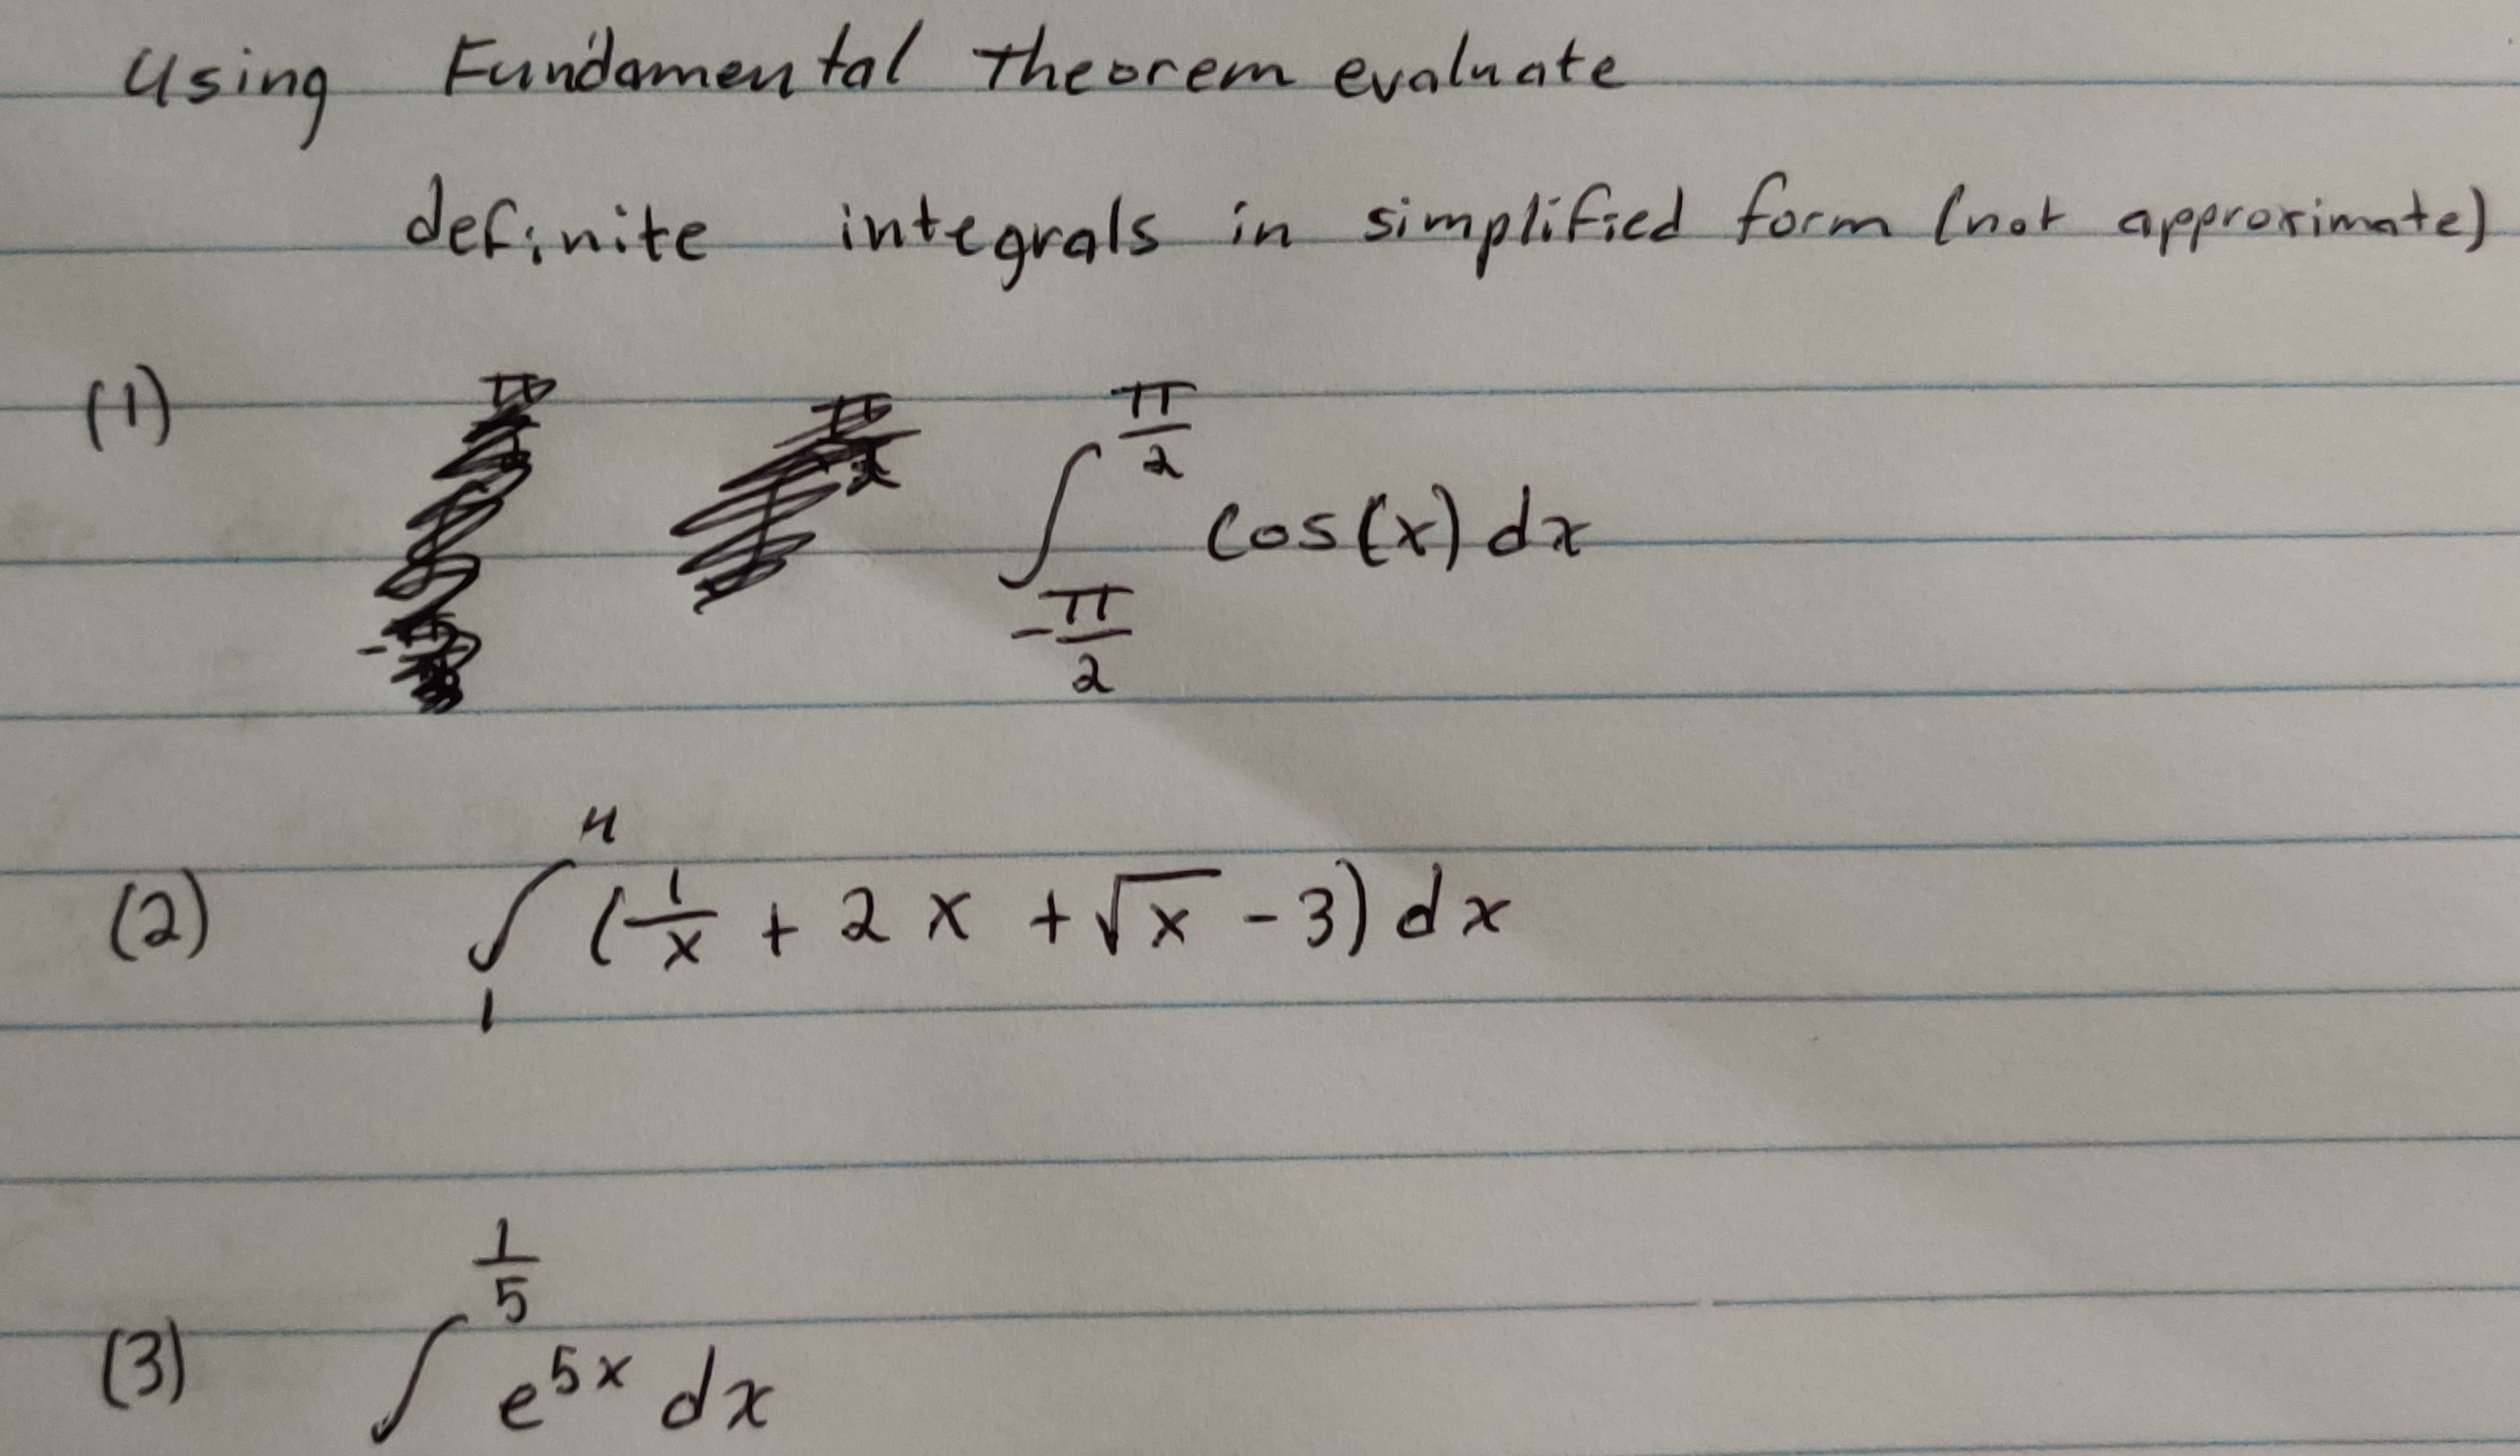 Using Fundamental Theorem evaluate
definite integrals in simplified form (not approximate)
(1) ∫_{-π/2}^{π/2} cos(x) dx
(2) ∫_1^4 (1/x + 2x + √x - 3) dx
(3) ∫^{1/5} e^{5x} dx